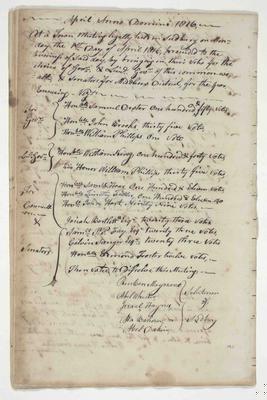 April Anno Domini 1816
At a Town Meeting legally held in Sudbury on Mon-
day the 1st Day of April 1816, proceeded to the
business of said day by bringing in their Votes for the
choice of Govr & Lieut Govr of this commonwe
alth, & Senators for Middlesex District, for the year
Ensuing
For Govr
Honble Samuel Dexter One hundred & fifty Votes
Honble John Brooks thirty five Votes
Honble William Phillips One Vote
Lt Govr
Honble William King One hundred & forty Votes
His Honor William Phillips thirty five Votes
For
Honble One Hundred & Eleven votes
Honble Timothy One Hundred & Eleven do
Honble Ninety Nine Votes
Senators
Josiah Bartlett Esqr twenty three Votes
Saml P P Fay Esqr twenty three Votes
Calvin Sanger Esqr twenty three Votes
Honble Foster twelve votes
Then Voted to Dissolve this Meeting
Selectmen
of
Sudbury
Israel Haynes
Abel